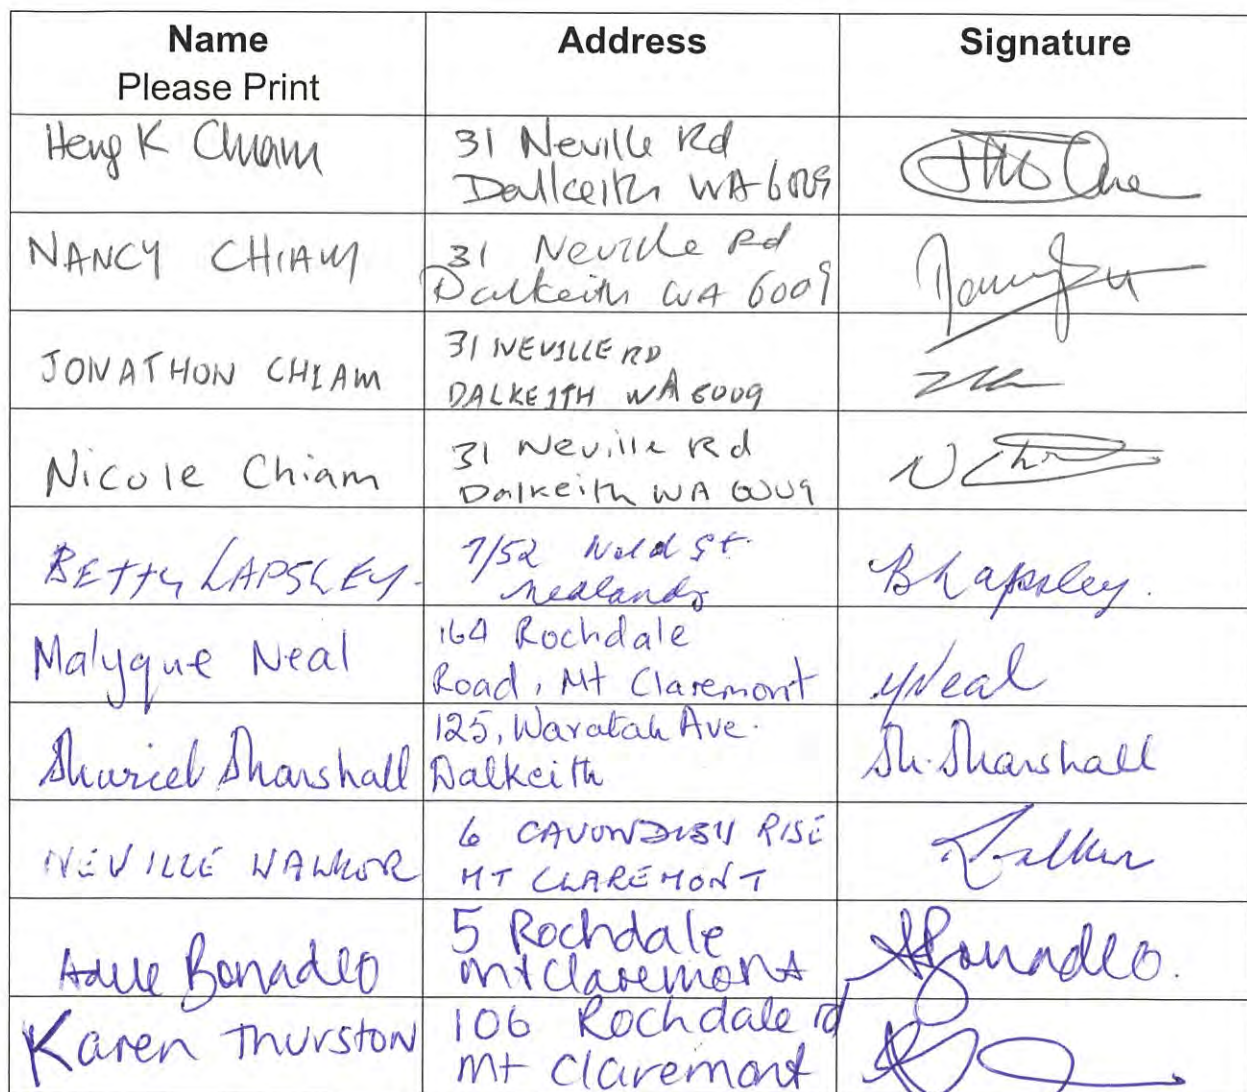 Name Address Signature
Please Print
Heng K Chiam 31 Neville Rd
Dalkeith WA 6009
NANCY CHIAM 31 Neville Rd
Dalkeith WA 6009
JONATHON CHIAM 31 NEVILLE RD
DALKEITH WA 6009
Nicole Chiam 31 Neville Rd
Dalkeith WA 6009
N Ch
BETTY LAPSLEY. 7/52 St.
Nedlands
B Lapsley.
Malyque Neal 164 Rochdale
Road, Mt Claremont
MNeal
Muriel Marshall 125, Waratah Ave.
Dalkeith
M. Marshall
NEVILLE WALKER 6 CAVENDISH RISE
MT CLAREMONT
Walker
Bonadeo 5 Rochdale
Mt Claremont
ABonadeo.
Karen Thurston 106 Rochdale rd
Mt Claremont